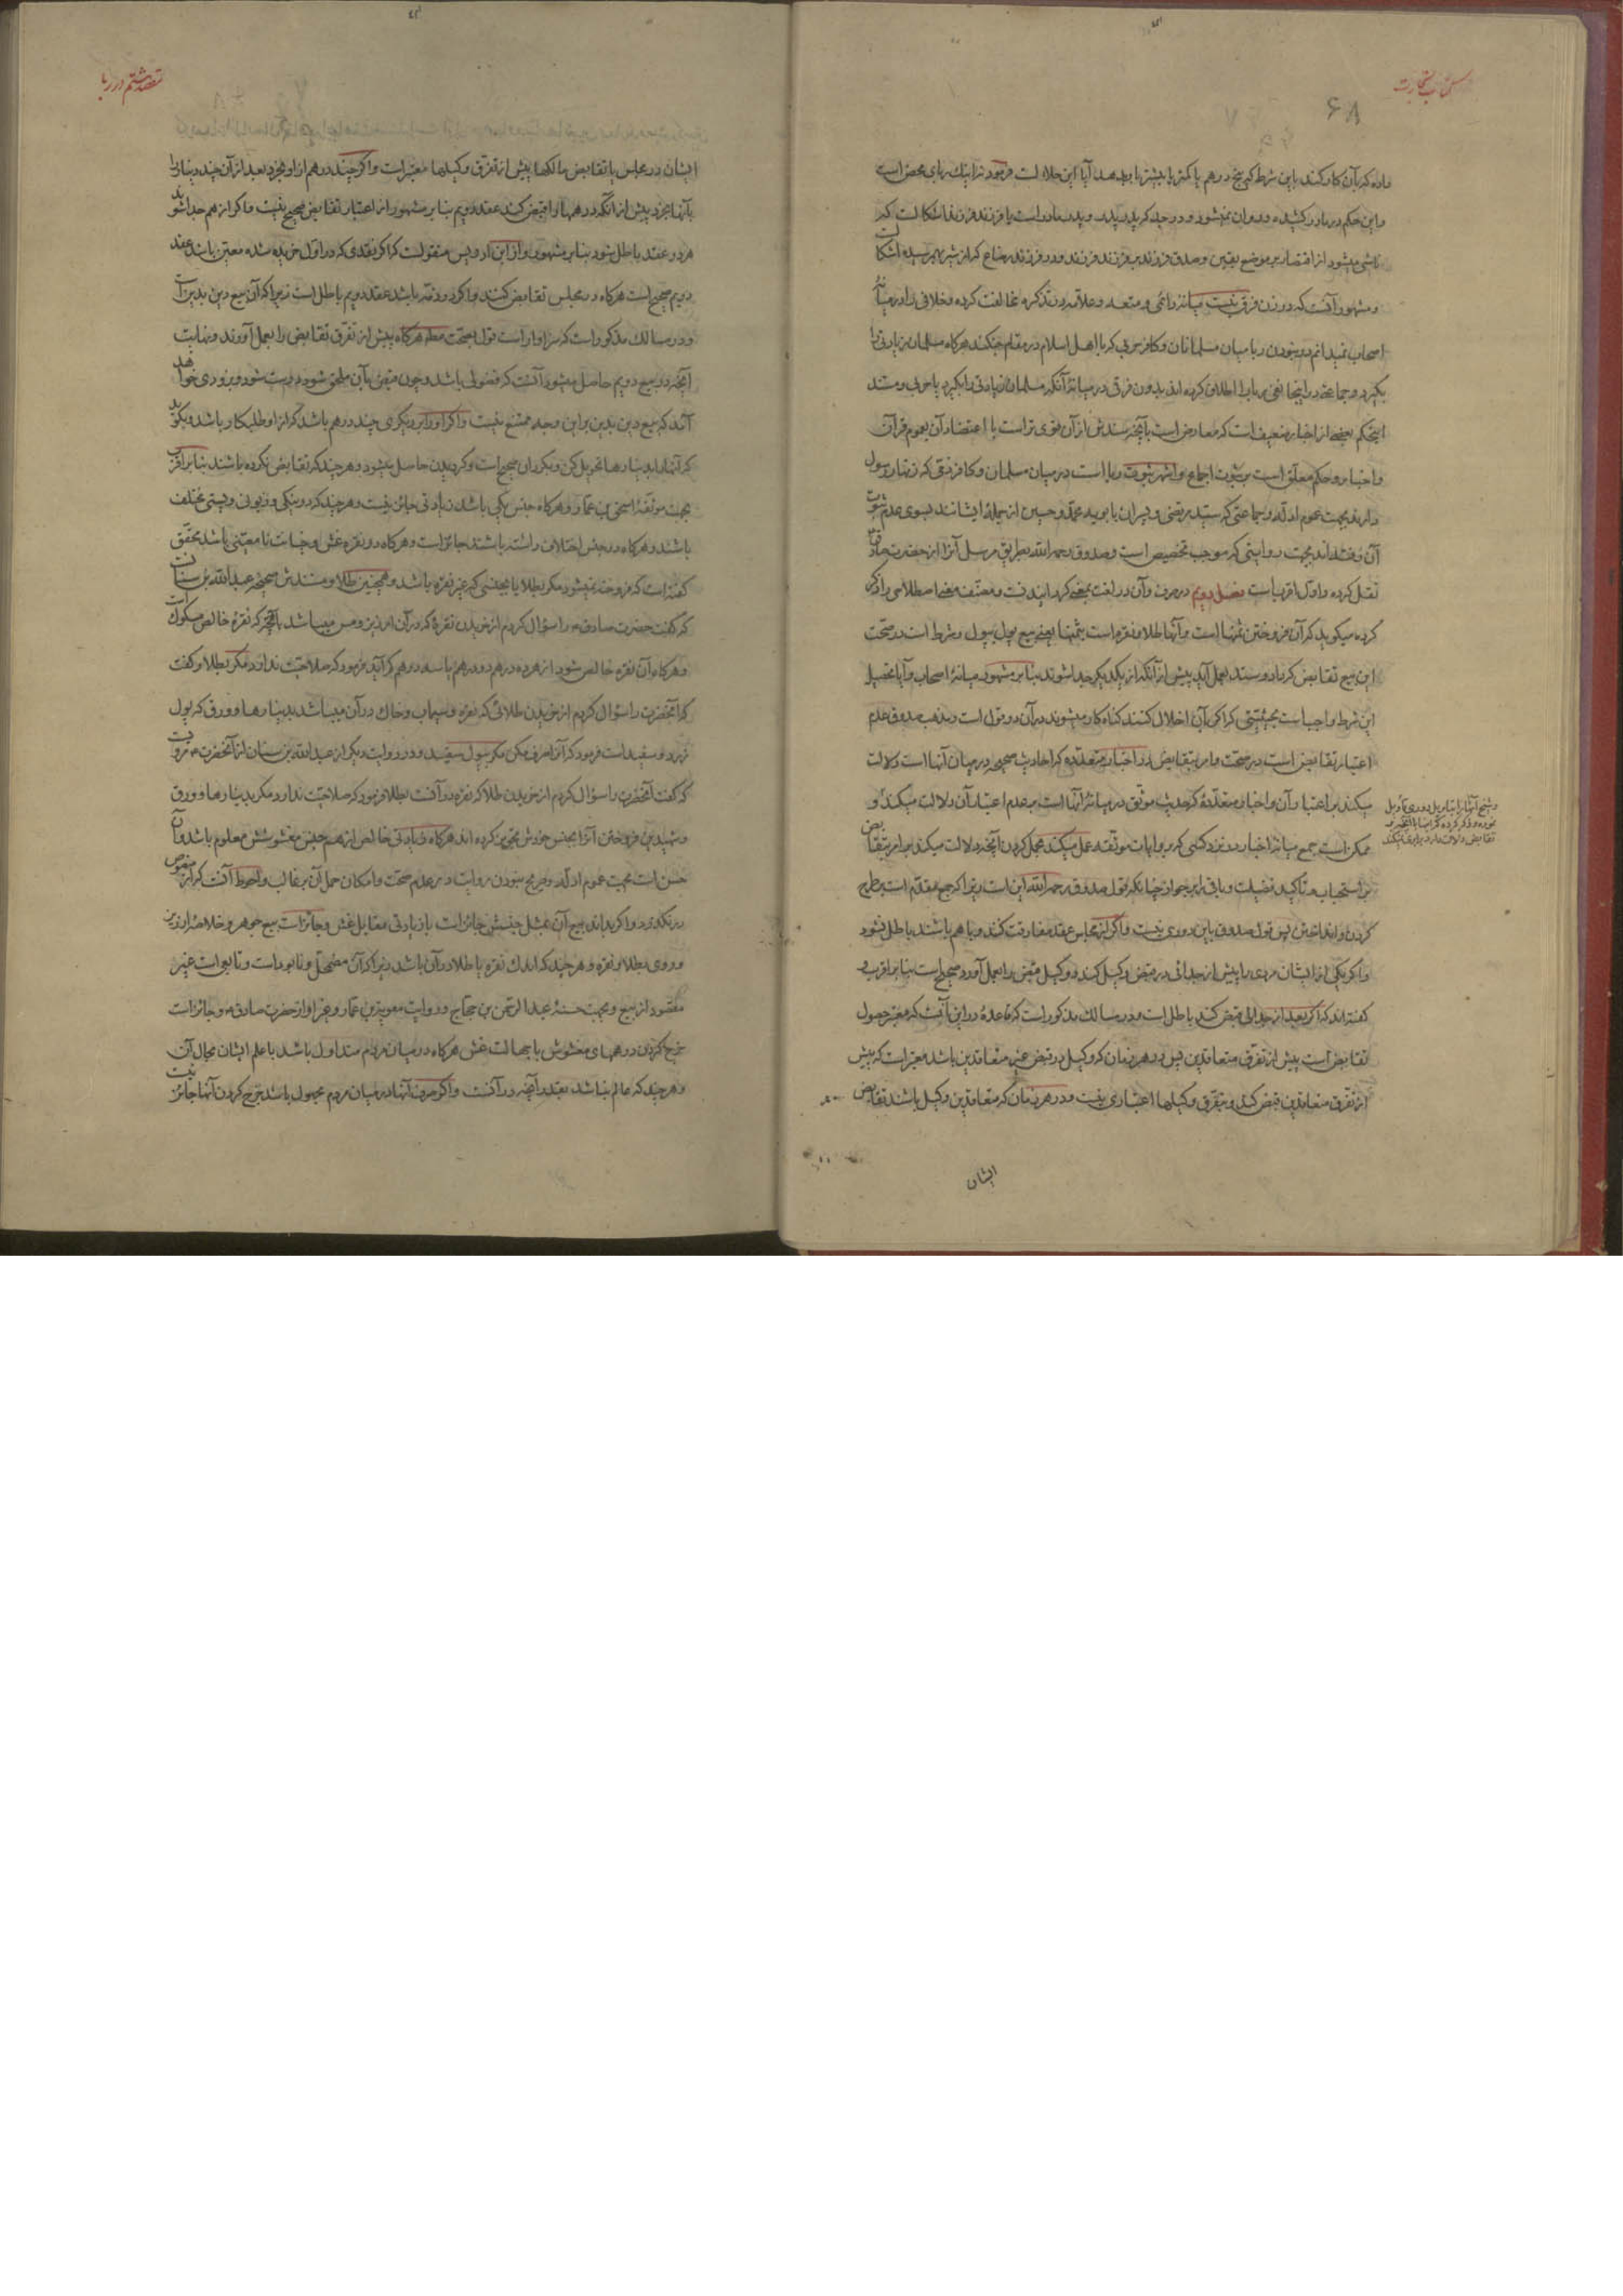 کتاب تجارت
۶۸
داده که بآن کار کند باین شرط که پنج درهم یا کمتر یا بیشتر باو بدهد آیا این حلالست فرمود نه اینک ربای محض است
و این حکم در مادر کشیده و روان نمیشود و در جد که پدر پدر و پدر مادر است یا فرزند فرزند اشکالست که
ناشی میشود از اقتصار بر موضع یقین و صدق فرزند بر فرزند فرزند و در فرزند رضاع که از شیر بهم رسیده اشکالست
و مشهور آنست که در زن فرق نیست میانهٔ دائمی و متعه و علامه در تذکره مخالفت کرده و خلافی را در میانهٔ
اصحاب نمیدانم در نبودن ربا میان مسلمانان و کافر حربی که با اهل اسلام در مقام جنکند هرکاه مسلمان زیادتی را
بکیرد و جماعتی در اینجا نفی ربا را اطلاق کرده اند بدون فرقی در میانهٔ آنکه مسلمان زیادتی را بکیرد یا حربی و مستند
اینحکم بعضی از اخبار ضعیف است که معارض است بآنچه سندش از آن قوی تر است با اعتضاد آن بعموم قرآن
و اخبار و حکم معلق است بر ثبوت اجماع و اشهر ثبوت ربا است در میان مسلمان و کافر ذمّی که زنهار رسول
دارند بجهت عموم ادلّه و جماعتی که سید مرتضی و پسران بابویه محمّد و حسین از جملهٔ ایشانند بسوی عدم ثبوت
آن رفته‌اند بجهت روایتی که موجب تخصیص است و صدوق رحمه الله بطریق مرسل آنرا از حضرت صادق
نقل کرده و اوّل اقرباست فصل دویم در صرف و آن در لغت بمعنی کردانیدنست و مصنّف معنی اصطلاحی را ذکر
کرده میکوید که آن فروختن ثمنهاست و آنها طلا و نقره است بثمنها یعنی بیع پول بپول و شرط است در صحّت
این بیع تقابض که داد و ستد بعمل آید پیش از آنکه از یکدیکر جدا شوند بنا بر مشهور میانهٔ اصحاب و آیا تحصیل
این شرط واجباست بحیثیتی که اکر بآن اخلال کنند کناه کار میشوند در آن دو قول است و مذهب صدوق عدم
اعتبار تقابض است در صحّت و امر بتقابض در اخبار متعدّده که احادیث صحیحه در میان آنها است دلالت
میکند بر اعتبار آن و اخبار متعدّدهٔ که حدیث موثّق در میانهٔ آنها است بر عدم اعتبار آن دلالت میکند و
ممکن است جمع میانهٔ اخبار در نزد کسی که بروایات موثّقه عمل میکند بحمل کردن آنچه دلالت میکند بر امر بتقابض
بر استحباب و تأکید فضیلت و باقی را بر جواز چنانکه قول صدوق رحمه الله این است زیرا که جمع مقدّم است بر طرح
کردن و انداختن پس قول صدوق باین دوری نیست و اکر از مجلس عقد مفارقت کنند و با هم باشند باطل نشود
و اکر یکی از ایشان مردی را پیش از جدائی در قبض وکیل کند و وکیل قبض را بعمل آورد صحیح است بنا بر اقرب و
کفته‌اند که اکر بعد از جدائی قبض کند باطل است و در مسالک مذکور است که قاعده در این آنست که معتبر حصول
تقابض است پیش از تفرّق متعاقدین پس در هر زمان که وکیل در قبض غیر متعاقدین باشد معتبر است که پیش
از تفرّق متعاقدین قبض کند و بتفرّق وکیلها اعتباری نیست و در هر زمان که متعاقدین وکیل باشند تقابض
ایشان
مقصد هشتم در ربا
ایشان در مجلس یا تقابض مالکها پیش از تفرّق وکیلها معتبر است و اکر چند درهم از او بخرد بعد از آن چند دینار را
بآنها بخرد پیش از آنکه درهمها را قبض کند عقد دویم بنا بر مشهور از اعتبار تقابض صحیح نیست و اکر از هم جدا شوند
هر دو عقد باطل شود بنا بر مشهور و از ابن ادریس منقولست که اکر نقدی که در اوّل خریده شده معیّن باشد عقد
دویم صحیح است هرکاه در مجلس تقابض کنند و اکر در ذمّه باشد عقد دویم باطل است زیرا که آن بیع دین بدین است
و در مسالک مذکور است که سزاوار است قول بصحّت مطلقا هرکاه پیش از تفرّق تقابض را بعمل آورند و نهایت
آنچه در بیع دویم حاصل میشود آنست که فضولی باشد و چون قبض بآن ملحق شود درست شود و بزودی خواهد
آمد که بیع دین بدین بر این وجه ممتنع نیست و اکر او را بر دیکری چند درهم باشد که از او طلبکار باشد و بکوید
که آنها را بدینارها تحویل کن و بکردان صحیح است و کردیدن حاصل میشود و هر چند که تقابض نکرده باشند بنا بر اقرب
بجهت موثّقهٔ اسحق بن عمّار و هرکاه جنس یکی باشد زیادتی جائز نیست و هر چند که در نیکی و زبونی و پستی مختلف
باشند و هرکاه در جنس اختلاف داشته باشند جائز است و هرکاه در نقره غش و خیانت نامعیّنی باشد محقّق
کفته است که فروخته نمیشود مکر بطلا یا بجنسی که غیر نقره باشد و همچنین طلا و مستندش صحیحهٔ عبد الله بن سنانست
که کفت حضرت صادق ع را سؤال کردم از خریدن نقرهٔ که در آن ارزیز و مس میباشد بآنچه که نقرهٔ خالص مسکوک است
و هرکاه آن نقره خالص شود از هر ده درهم دو درهم یا سه درهم کم آید فرمود که صلاحیت ندارد مکر بطلا و کفت
که آنحضرت را سؤال کردم از خریدن طلائی که نقره و سیماب و خاک در آن میباشد بدینارها و ورق که پول
زرد و سفید است فرمود که آنرا صرف مکن مکر بپول سفید و در روایت دیکر از عبد الله بن سنان از آنحضرت ع مرویست
که کفت آنحضرت را سؤال کردم از خریدن طلا که نقره در آنست بطلا فرمود که صلاحیت ندارد مکر بدینارها و ورق
و شهیدین فروختن آنرا بجنس خودش تجویز کرده اند هرکاه زیادتی خالص از هم جنس مغشوشش معلوم باشد و آن
حسن است بجهت عموم ادلّه و صریح نبودن روایات در عدم صحّت و امکان حمل آن بر غالب و احوط آنست که از منصوص
در نکذرد و اکر بداند بیع آن بمثل جنسش جائز است با زیادتی مقابل غش و جائز است بیع جوهر و خلاصهٔ ارزیز
و روی بطلا و نقره و هر چند که اندک نقره یا طلا در آن باشد زیرا که آن مضمحل و نابود است و تابعی است غیر
مقصود از بیع و بجهت حسنهٔ عبد الرحمن بن حجاج و روایت معویة بن عمّار و غیر او از حضرت صادق ع و جائز است
خرج کردن درهمهای مغشوش با جهالت غش هرکاه در میان مردم متداول باشد با علم ایشان بحال آن
و هر چند که عالم نباشد بقدر آنچه در آنست و اکر صرف آنها در میان مردم مجهول باشد خرج کردن آنها جائز نیست